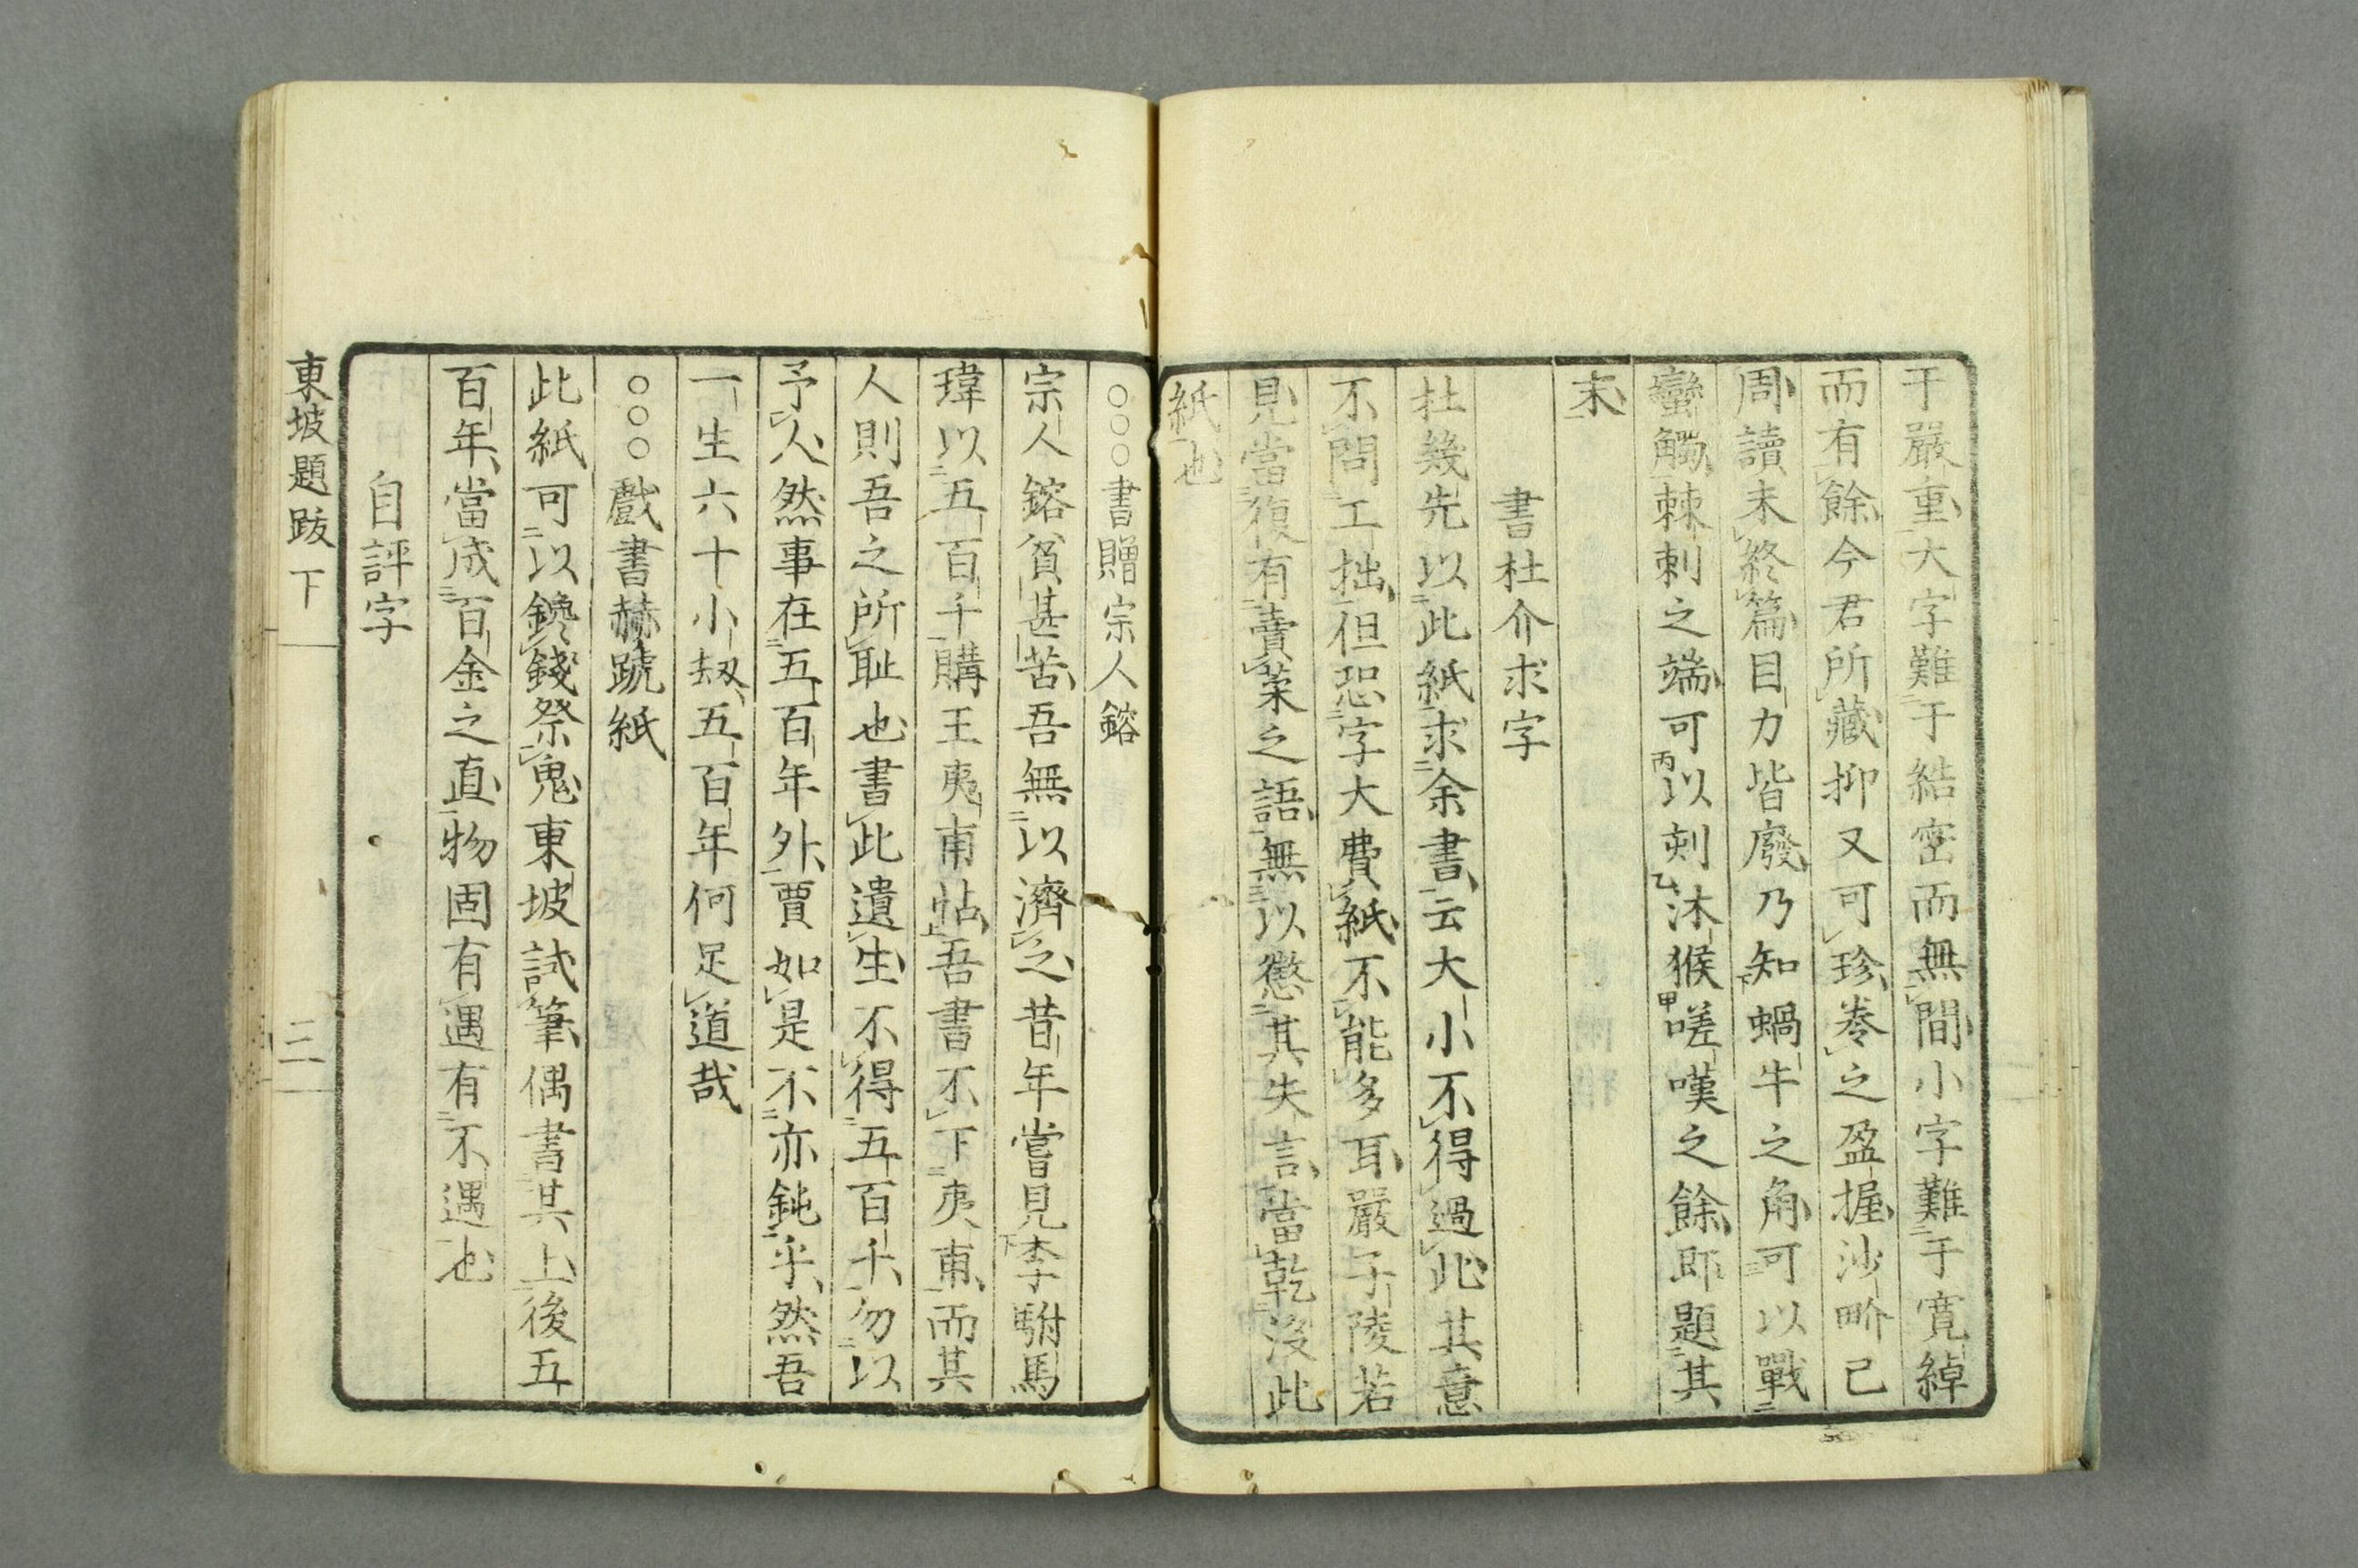 于嚴重大字難于結密而無間小字難于寬綽
而有餘今君所藏抑又可珍卷之盈握沙界已
周讀末終篇目力皆廢乃知蝸牛之角可以戰
蠻觸棘刺之端可以刻沐猴嗟嘆之餘即題其
末
書杜介求字
杜幾先以此紙求余書云大小不得過此其意
不問工拙但恐字大費紙不能多耳嚴子陵若
見當復有賣菜之語無以懲其失言當乾沒此
紙也
○○○書贈宗人鎔
宗人鎔貧甚苦吾無以濟之昔年嘗見李駙馬
瑋以五百千購王夷甫帖吾書不下夷甫而其
人則吾之所耻也書此遺生不得五百千勿以
予人然事在五百年外賈如是不亦鈍乎然吾
一生六十小劫五百年何足道哉
○○○戲書赫蹏紙
此紙可以鑱錢祭鬼東坡試筆偶書其上後五
百年當成百金之直物固有遇有不遇也
自評字
東坡題跋下
三